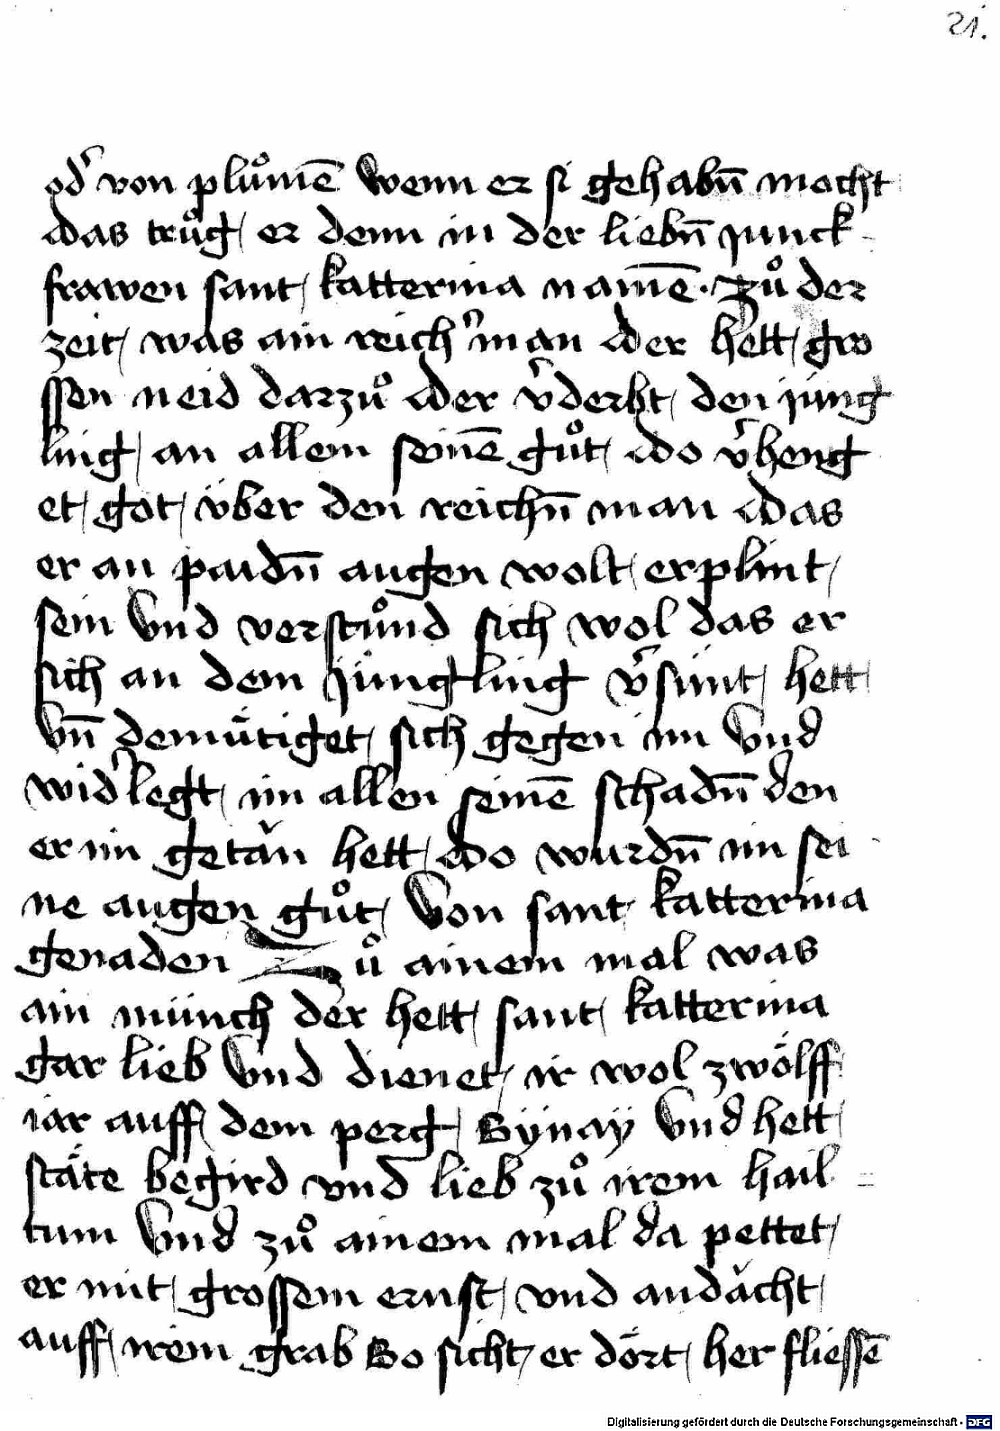 21.
od᷑ von plůmē wenn er si gehabn̄ mocht
das trůg er denn in der liebn̄ junck-
frawen sant katterina namē· Zů der
zeit was ain reich᷑ man der hett gro
ssen neid darzů der v᷑derbt den jüng
ling an allem seinē gůt do v᷑heng
et got über den reichn̄ man das
er an paidn̄ augen wolt erplint
sein vnd verstůnd sich wol das er
sich an dem jüngling v᷑sünt hett
vn̄ demütiget sich gegen im vnd
wid᷑legt im allen seinē schadn̄ den
er im getǎn hett do wurdn̄ im sei
ne augen gůt von sant katterina
genaden Zů ainem mal was
ain münch der hett sant katterina
gar lieb vnd dienet ir wol zwölff
iar auff dem perg Sÿnaÿ vnd hett
stäte begird vnd lieb zů irem hail=
tum vnd zů ainem mal da pettet
er mit grossem ernst vnd andǎcht
auff irem grab So sicht er dört her fliessē
Digitalisierung gefördert durch die Deutsche Forschungsgemeinschaft - DFG